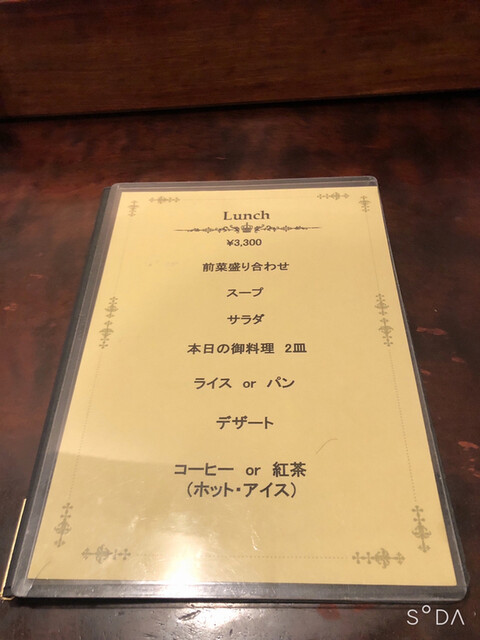 Lunch
¥3,300
前菜盛り合わせ
スープ
サラダ
本日の御料理 2皿
ライス or パン
デザート
コーヒー or 紅茶
(ホット・アイス)
SODA